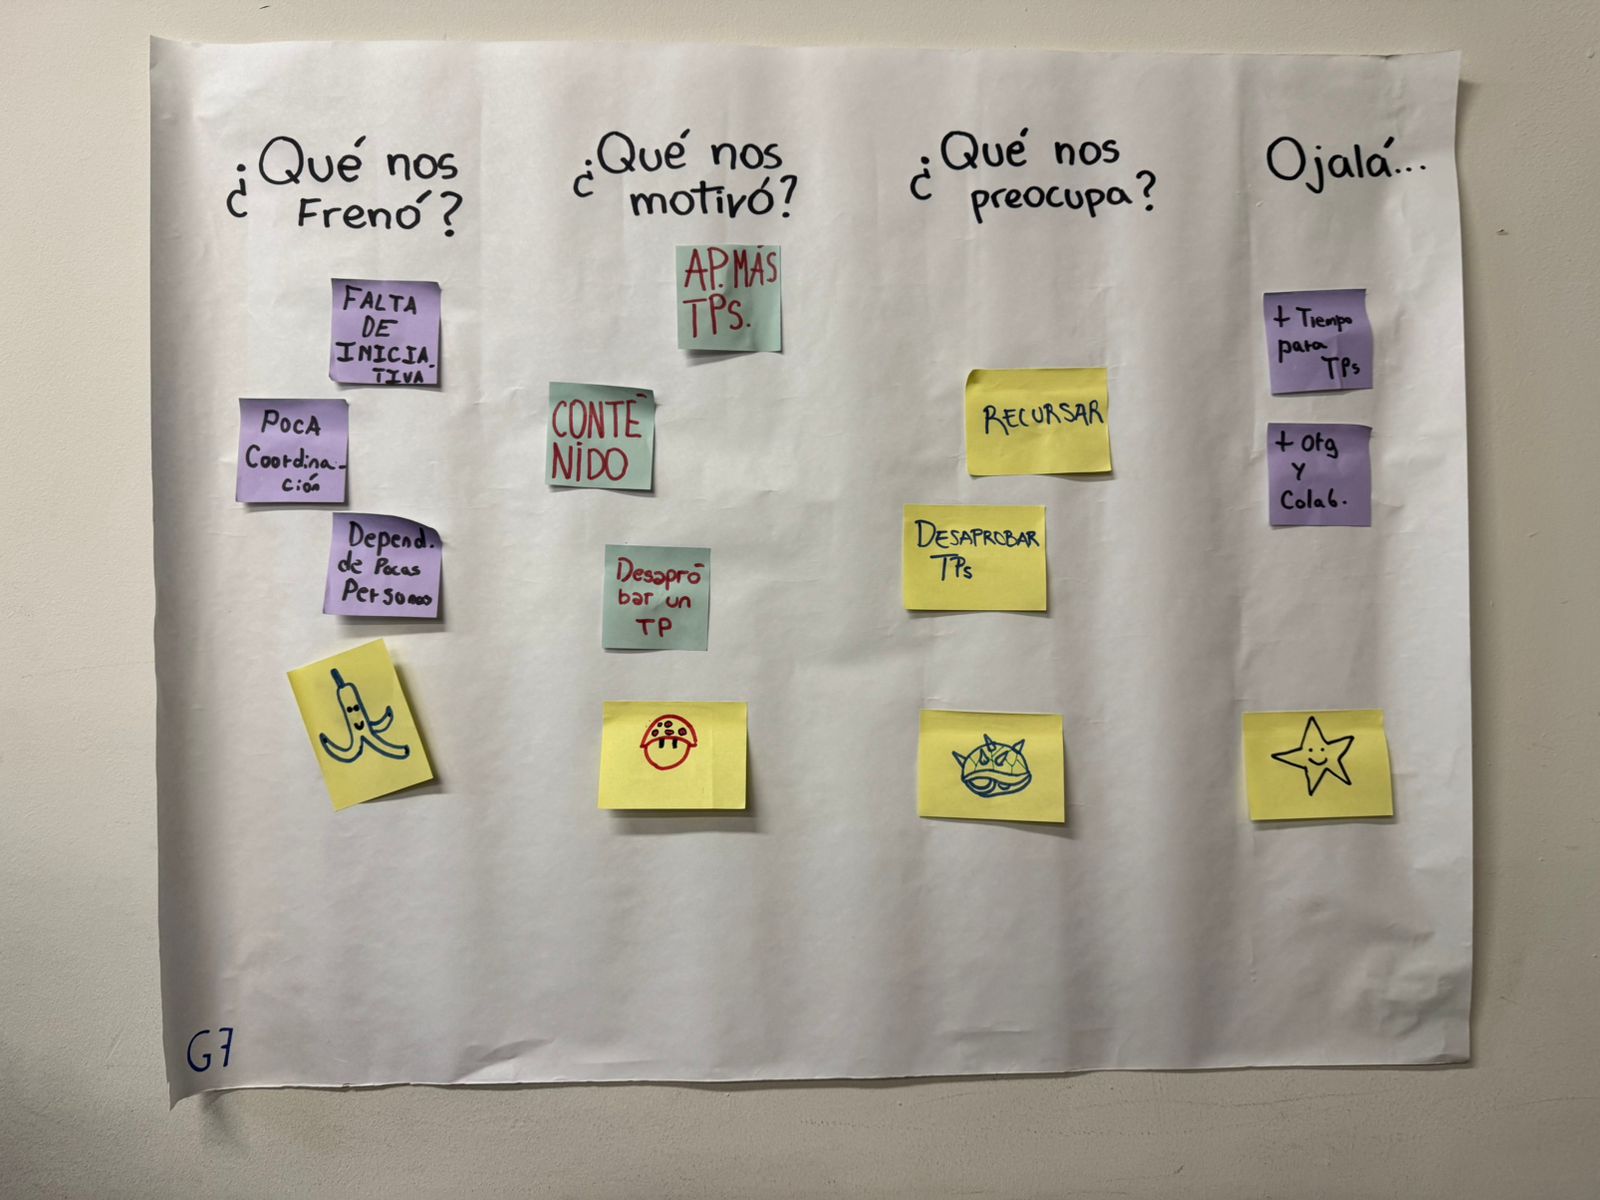 ¿Qué nos
Frenó?
FALTA
DE
INICIA.
TIVA.
POCA
Coordina-
ción
Depend.
de Pocas
Personas
¿Qué nos
motivó?
AP. MÁS
TPS.
CONTE-
NIDO
Desapro-
bar un
TP
¿Qué nos
preocupa?
RECURSAR
DESAPROBAR
TPs
Ojalá...
+ Tiempo
para
TPs
+ Org
Y
Colab.
G7